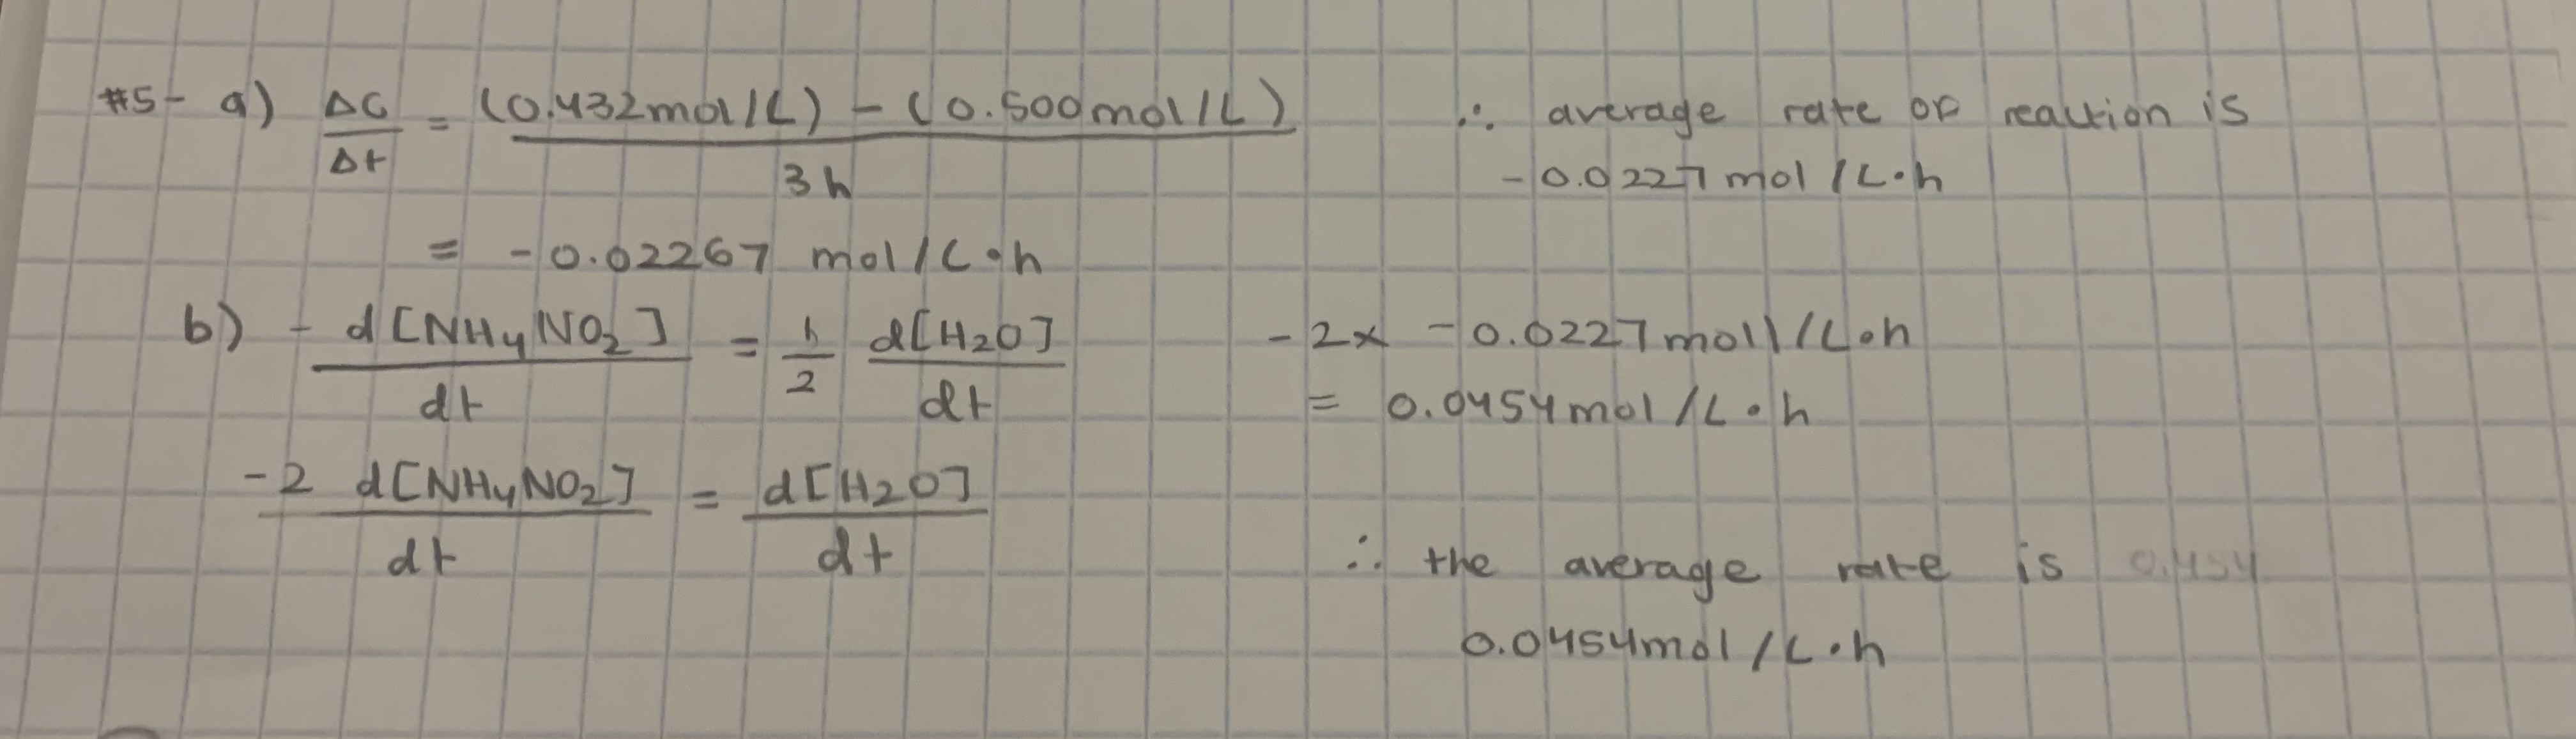 #5- a) ΔC/Δt = (0.432mol/L) - (0.500mol/L) / 3h
= -0.02267 mol/L·h
∴ average rate of reaction is
-0.0227 mol/L·h
b) - d[NH4NO2]/dt = 1/2 d[H2O]/dt
-2 d[NH4NO2]/dt = d[H2O]/dt
-2x -0.0227moll/L·h
= 0.0454mol/L·h
∴ the average rate is 0.454
0.0454mol/L·h